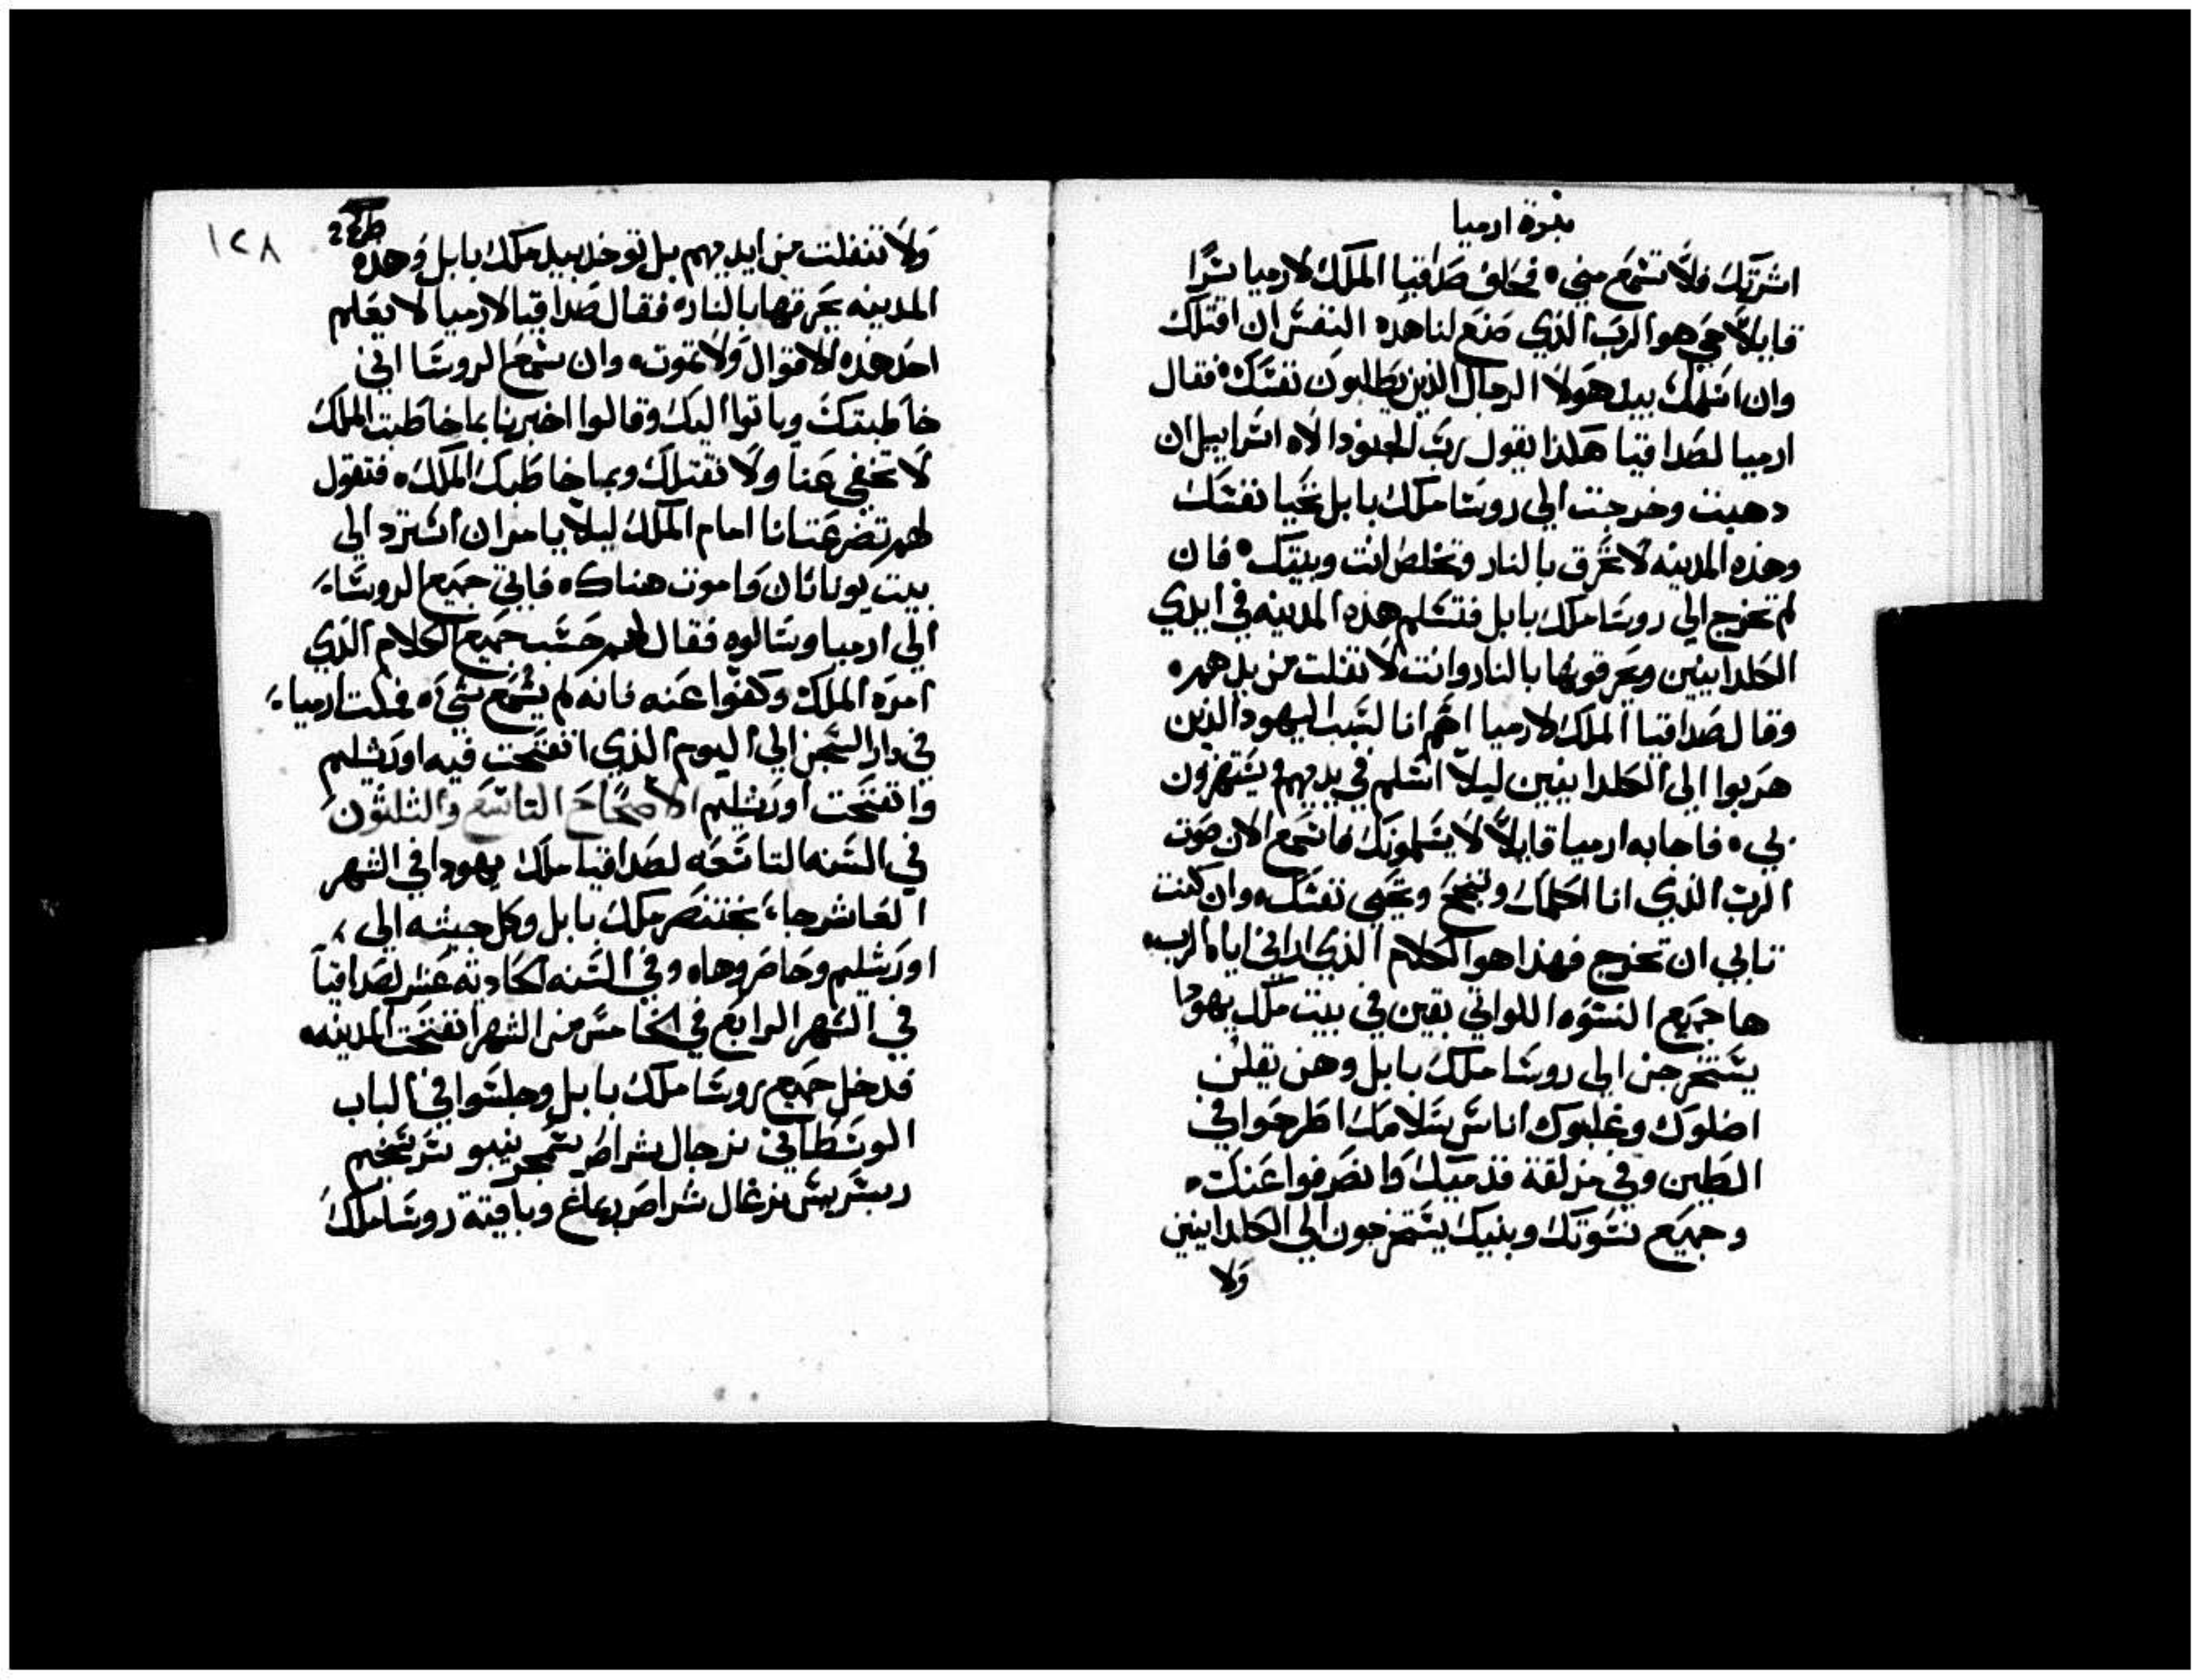 نبوة ارميا
اشرتك فلا تسمع مني ٠ فحلف صداقيا الملك لارميا سرا
قايلا حي هو الرب الذي صنع لنا هذه النفس ان اقتلك
وان اسلمك بيد هولا الرجال الذين يطلبون نفسك ٠ فقال
ارميا لصداقيا هكذا يقول رب الجنود الاه اسراييل ان
دهبت وخرجت الي روسا ملك بابل تحيا نفسك
وهذه المدينه لا تحرق بالنار وتخلص انت وبيتك ٠ فان
لم تخرج الي روسا ملك بابل فتسلم هذه المدينه في ايدي
الكلدانيين ويحرقونها بالنار وانت لا تفلت من يدهم ٠
وقال صداقيا الملك لارميا اهتم انا لسبب اليهود الذين
هربوا الي الكلدانيين ليلا اسلم في يديهم ويستهزون
بي ٠ فاجابه ارميا قايلا لا يسلمونك فاسمع الان صوت
الرب الذي انا اكلمك وتنجح وتحيي نفسك ٠ وان كنت
تابي ان تخرج فهذا هو الكلام الذي اراني اياه الرب ٠
ها جميع النسوه اللواتي بقين في بيت ملك يهودا
يستخرجن الي روسا ملك بابل وهن يقلن
اضلوك وغلبوك اناس سلامك اطرحوا في
الطين وفي مزلقة قدميك وانصرفوا عنك ٠
وجميع نسوتك وبنيك يستخرجون الي الكلدانيين
ولا
١٢٨
ولا تنفلت من ايديهم بل توخذ بيد ملك بابل وهذه
المدينه يحرقها بالنار ٠ فقال صداقيا لارميا لا يعلم
احد هذه الاقوال ولا تموت ٠ وان سمع الروسا اني
خاطبتك وياتوا اليك وقالوا اخبرنا بما خاطبت الملك
لا تخفي عنا ولا نقتلك وبما خاطبك الملك ٠ فتقول
لهم تضرعت انا امام الملك ليلا يامر ان استرد الي
بيت يوناثان واموت هناك ٠ فاتي جميع الروساء
الي ارميا وسالوه فقال لهم حسب جميع الكلام الذي
امره الملك وكفوا عنه فانه لم يسمع شيء ٠ فمكث ارميا
في دار السجن الي اليوم الذي انفتحت فيه اورشليم
وانفتحت اورشليم الاصحاح التاسع والثلثون
في السنه التاسعه لصداقيا ملك يهودا في الشهر
العاشر جاء بختنصر ملك بابل وكل جيشه الي
اورشليم وحاصروها ٠ وفي السنه الحاديه عشر لصداقيا
في الشهر الرابع في الخامس من الشهر انفتحت المدينه ٠
فدخل جميع روسا ملك بابل وجلسوا في الباب
الوسطاني نرجال شراصر سمجر نيبو سرسخيم
ربسريس نرغال شراصر بماغ وباقية روسا ملك